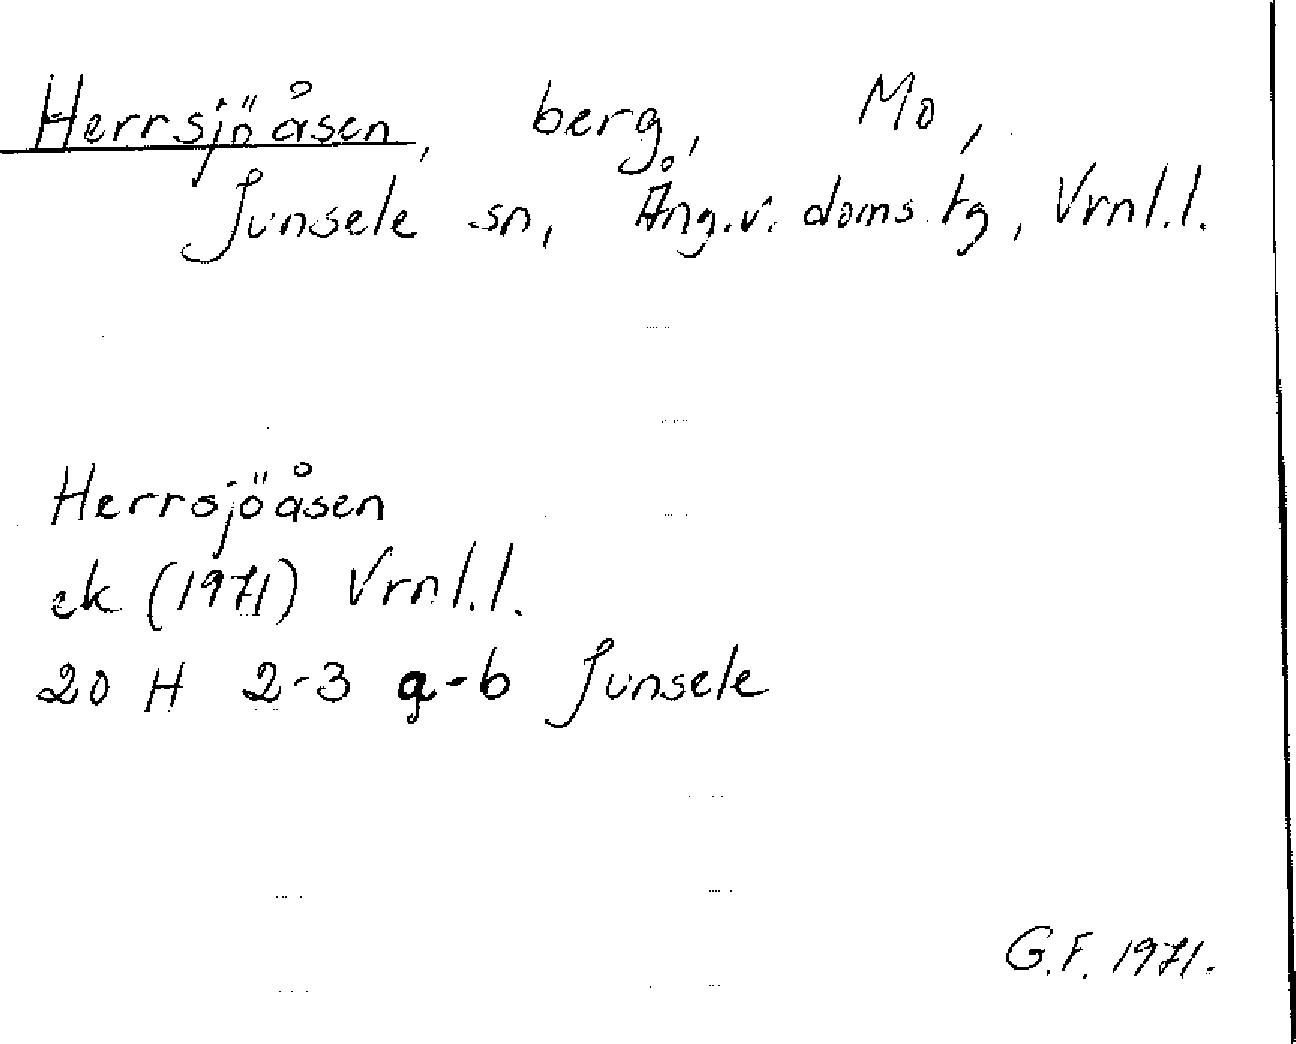 Herrsjöåsen, berg, Mo,
Junsele sn, Ång.v. doms.tg, Vrnl.l.
Herrsjöåsen
ek (1971) Vrnl.l.
20 H 2-3 a-b Junsele
G.F. 1971.